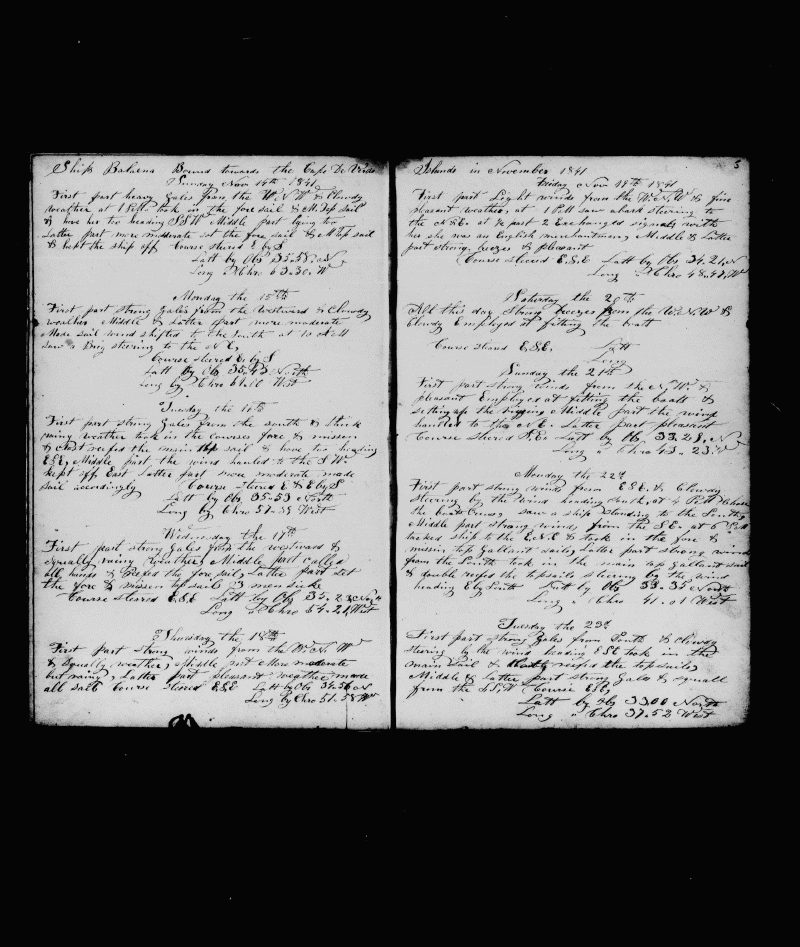 Ship Balaena Bound towards the Cape De Verde
Sunday Nov 14th 1841
First part heavy Gales from the W.N.W & Cloudy
weather at 1 P.M. took in the fore sail & M Top sail
& hove her too heading S.S.W Middle part lying too
Latter part more moderate set the fore sail & M Top sail
& kept the ship off Course steered E by S
Latt by Obs 35..58 N
Long by Chro 63..30 W
Monday the 15th
First part strong Gales from the Westward & Cloudy
weather Middle & Latter part more moderate
Made sail wind shifted to the South at 10 AM
saw a Brig steering to the N.E.
Course steered E by S
Latt by Ob 35..43 North
Long by Chro 61..00 West
Tuesday the 16th
First part strong Gales from the south & thick
rainy weather took in the Courses fore & mizzen
& close reefed the main top sail & hove too heading
ESE, Middle part the wind hauled to the S W
kept off East Latter part more moderate made
sail accordingly Course steered E & E by S
Latt by Obs 35..53 North
Long by Chro 57..38 West
Wednesday the 17th
First part strong Gales from the westward &
squally rainy weather, Middle part called
all hands & reefed the fore sail, Latter part set
the fore & mizzen top sails 3 men sick
Course steered E.S.E Latt by Obs 35..23 North
Long by Chro 54..21 West
Thursday the 18th
First part Strong winds from the W.N.W
& squally weather, Middle part more moderate
but rainy, Latter part pleasant weather made
all sail Course steered E.S.E Latt by Obs 34.56 N
Long by Chro 51..58 W
5
Islands in November 1841
Friday Nov 19th 1841
First part Light winds from the W.N.W & fine
pleasant weather, at 1 PM saw a bark steering to
the N.E. at ½ past 2 Exchanged signals with
her she was an English merchantman Middle & Latter
part strong breezes & pleasant
Course steered E.S.E Latt by Obs 34.21 N
Long Chro 48..42 W
Saturday the 20th
All this day Strong breezes from the W.N.W &
Cloudy Employed at fitting the boats
Course steered E.S.E. Latt
Long
Sunday the 21th
First part strong winds from the N.W &
pleasant Employed at fitting the boats &
setting up the rigging Middle part the wind
hauled to the N.E. Latter part pleasant
Course steered S.E. Latt by Ob 33..28 N
Long " Chro 43..23 W
Monday the 22d
First part strong wind from E.S.E. & Cloudy
steering by the Wind heading South, at 4 P.M
the boats Crews saw a ship standing to the South
Middle part strong winds from the S.E. at 6
tacked ship to the E.N.E & took in the fore &
mizzen top Gallant sails, Latter part strong winds
from the South took in the main top gallant sail
& double reefed the topsails steering by the wind
heading E by South Latt by Obs 33..35 North
Long " Chro 41..01 West
Tuesday the 23d
First part strong Gales from South & Cloudy
steering by the wind heading ESE took in the
main Sail & reefed the topsails
Middle & Latter part strong Gales & squalls
from the S.S.W Course ESE
Latt by Ob 33.00 North
Long " Chro 37..52 West